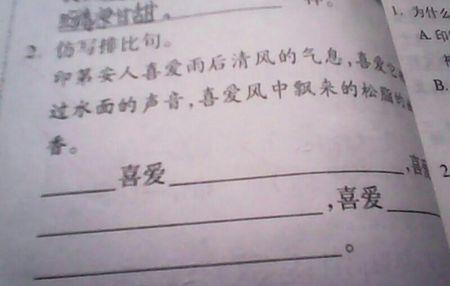 2. 仿写排比句。
印第安人喜爱雨后清风的气息,喜爱它
过水面的声音,喜爱风中飘来的松脂的
香。
喜爱 ,喜
,喜爱
。
1. 为什么
A. 印
B.
2